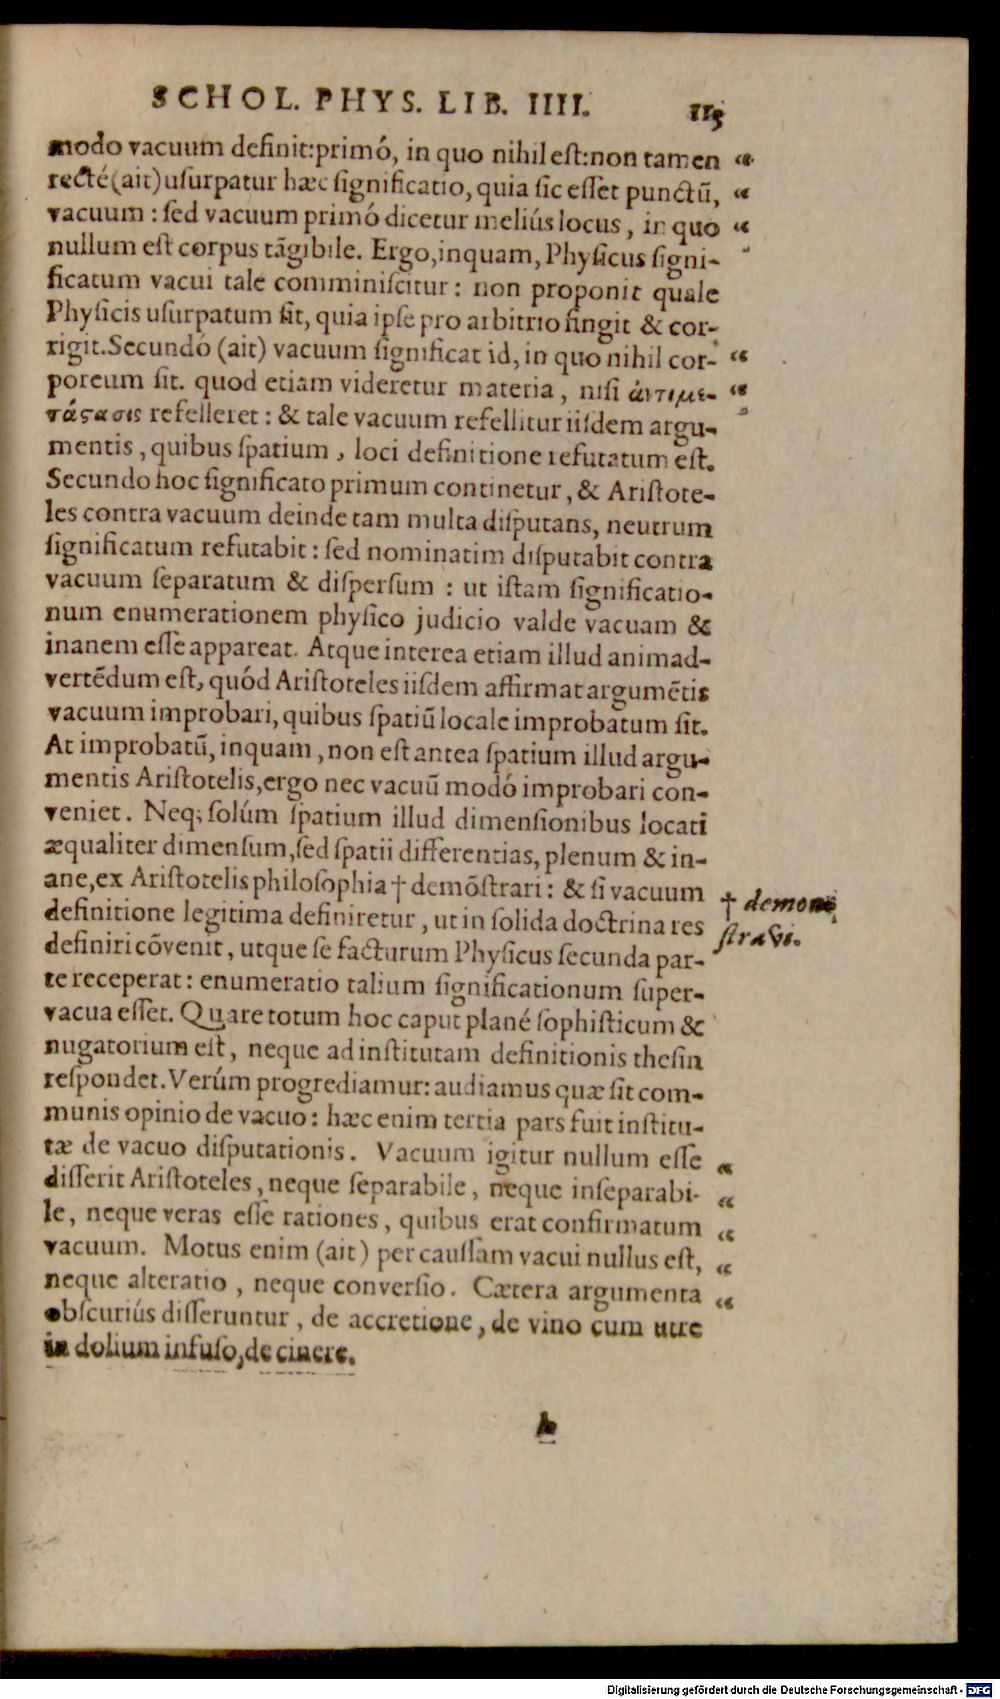 SCHOL. PHYS. LIB. IIII. 113
modo vacuum definit:primó, in quo nihil est:non tamen „
recté(ait)usurpatur hæc significatio, quia sic esset punctũ, „
vacuum : sed vacuum primó dicetur meliús locus, in quo „
nullum est corpus tãgibile. Ergo,inquam, Physicus signi- „
ficatum vacui tale comminiscitur: non proponit quale
Physicis usurpatum sit, quia ipse pro arbitrio fingit & cor-
rigit.Secundó (ait) vacuum significat id, in quo nihil cor- „
poreum sit. quod etiam videretur materia, nisi ἀντιμε- „
τάςασις refelleret: & tale vacuum refellitur iisdem argu- „
mentis, quibus spatium, loci definitione refutatum est.
Secundo hoc significato primum continetur, & Aristote-
les contra vacuum deinde tam multa disputans, neutrum
significatum refutabit: sed nominatim disputabit contra
vacuum separatum & dispersum : ut istam significatio-
num enumerationem physico judicio valde vacuam &
inanem esse appareat. Atque interea etiam illud animad-
vertẽdum est, quód Aristoteles iisdem affirmat argumẽtis
vacuum improbari, quibus spatiũ locale improbatum sit.
At improbatũ, inquam, non est antea spatium illud argu-
mentis Aristotelis,ergo nec vacuũ modó improbari con-
veniet. Neq; solúm spatium illud dimensionibus locati
æqualiter dimensum,sed spatii differentias, plenum & in-
ane,ex Aristotelis philosophia † demõstrari: & si vacuum
definitione legitima definiretur, ut in solida doctrina res
definiri cõvenit, utque se facturum Physicus secunda par-
te receperat: enumeratio talium significationum super-
vacua esset. Quare totum hoc caput plané sophisticum &
nugatorium est, neque ad institutam definitionis thesin
respondet. Verúm progrediamur: audiamus quæ sit com-
munis opinio de vacuo: hæc enim tertia pars fuit institu-
tæ de vacuo disputationis. Vacuum igitur nullum esse „
disserit Aristoteles, neque separabile, neque inseparabi- „
le, neque veras esse rationes, quibus erat confirmatum „
vacuum. Motus enim (ait) per caussam vacui nullus est, „
neque alteratio, neque conversio. Cætera argumenta „
obscuriús disseruntur, de accretione, de vino cum utre
in dolium infuso, de cinere.
† demon-
stravi.
h
Digitalisierung gefördert durch die Deutsche Forschungsgemeinschaft - DFG